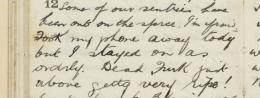 12 Some of our sentries have
been out on the spree. I'm upon
Took my phone away today
but I stayed on as
orderly. Dead Turk just
above gettg very ripe!